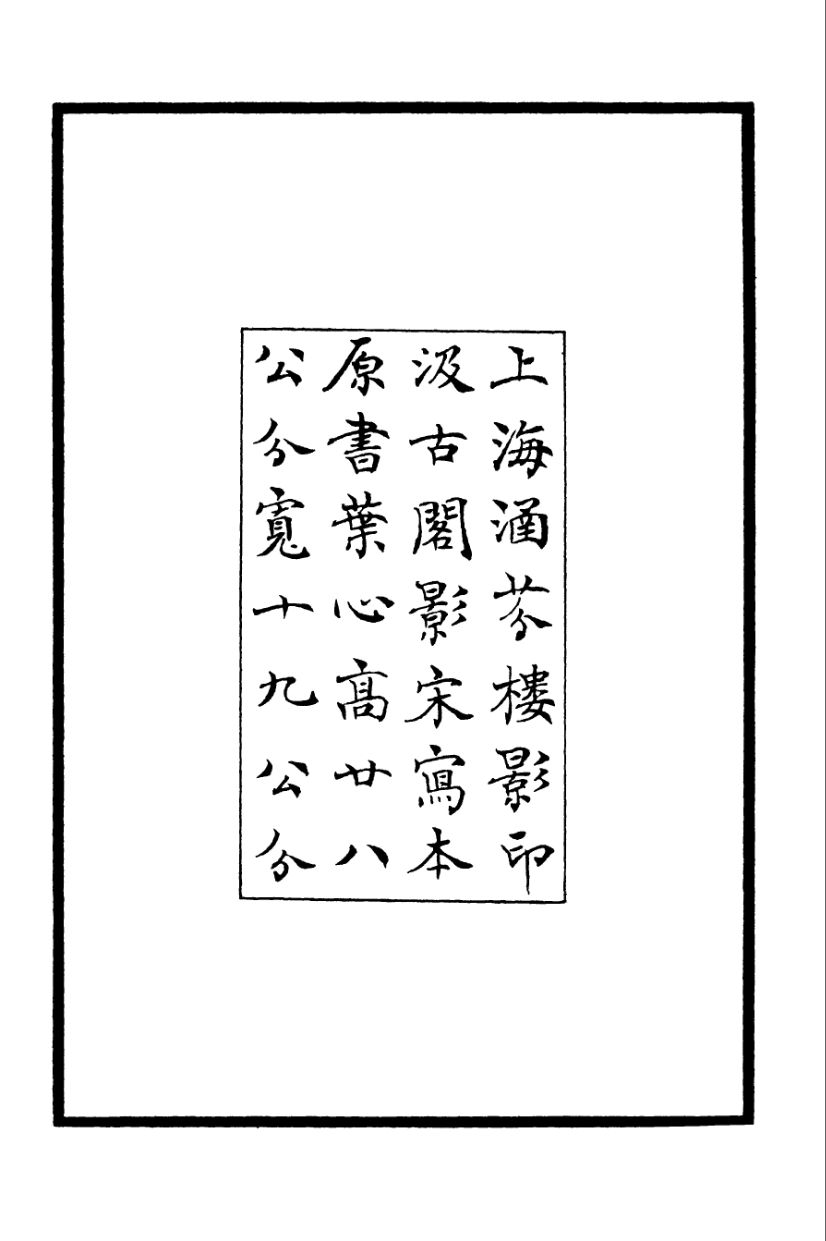 上海涵芬樓影印
汲古閣影宋寫本
原書葉心高廿八
公分寬十九公分